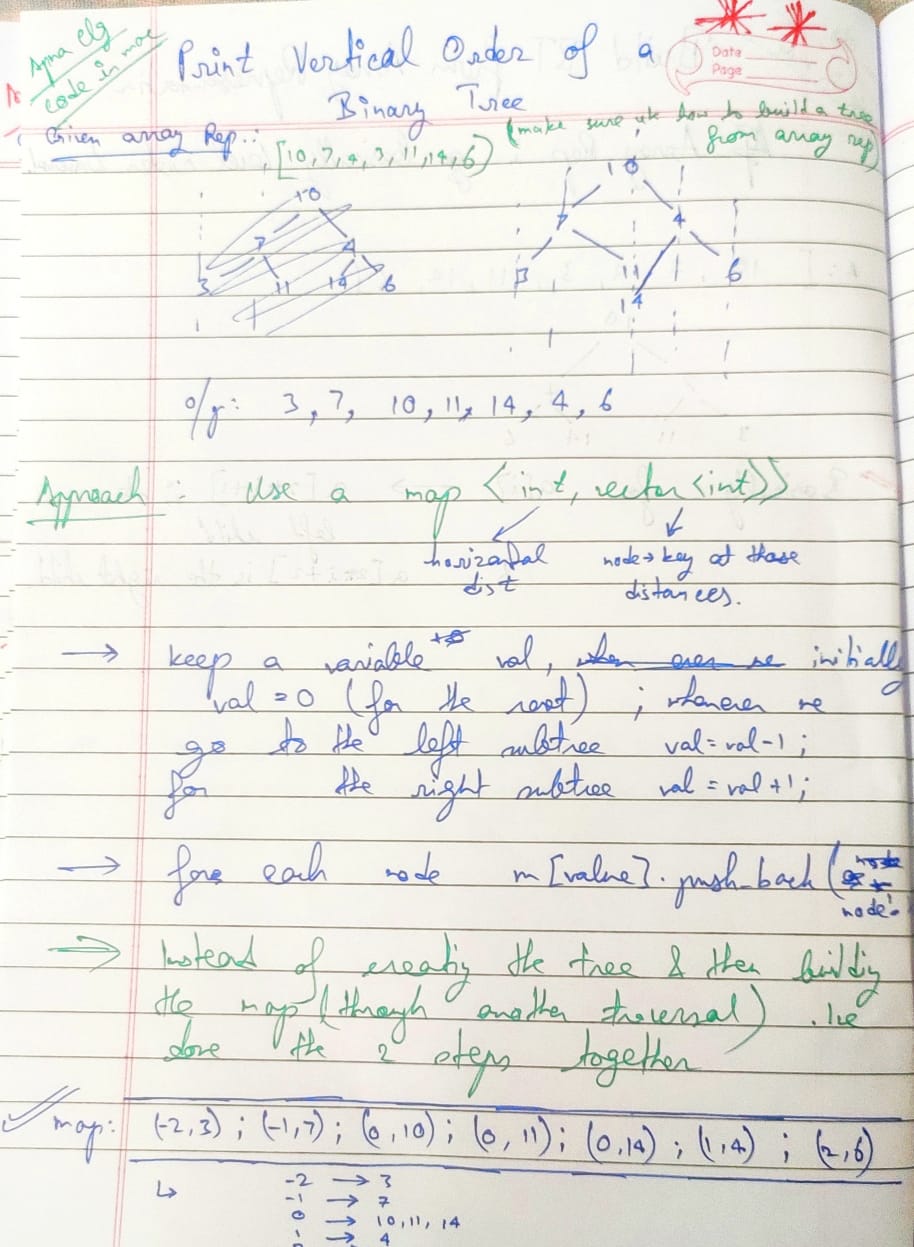 Apna clg
code in mac
Print Vertical Order of a
Binary Tree
Date
Page
Given array Rep.:
[10, 7, 4, 3, 11, 14, 6)
(make sure uk how to build a tree
from array rep)
10
7 4
3 11 14 6
10
7 4
3 11 6
14
o/p: 3, 7, 10, 11, 14, 4, 6
Approach : Use a map <int, vector<int>>
horizontal
dist
node→key at those
distances.
→ keep a variable val, initially
val = 0 (for the root) ; whenever we
go to the left subtree val = val-1 ;
for the right subtree val = val +1 ;
→ for each node m[value].push_back(
node
⇒ Instead of creating the tree & then building
the map (through another traversal). We
done the 2 steps together
map: (-2,3) ; (-1,7) ; (0,10) ; (0,11) ; (0,14) ; (1,4) ; (2,6)
-2 → 3
-1 → 7
0 → 10, 11, 14
1 → 4